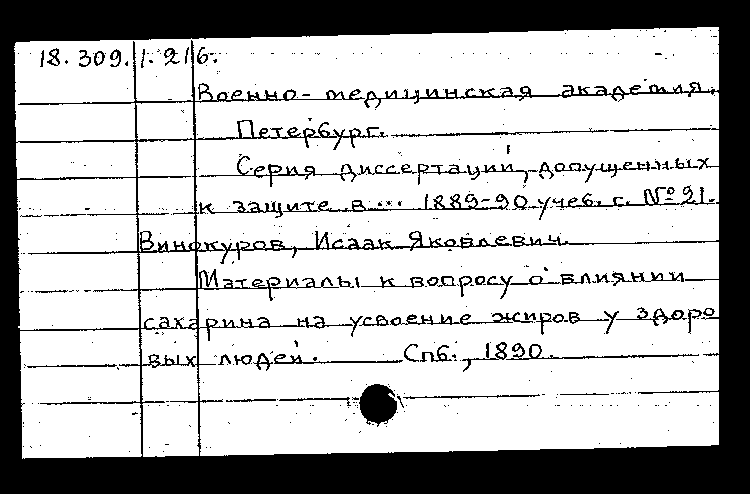 18.309.1.216.
Военно-медицинская академия.
Петербург.
Серия диссертаций, допущенных
к защите в ... 1889-90 учеб. г. № 21.
Винокуров, Исаак Яковлевич.
Материалы к вопросу о влиянии
сахарина на усвоение жиров у здоро
вых людей. Спб., 1890.